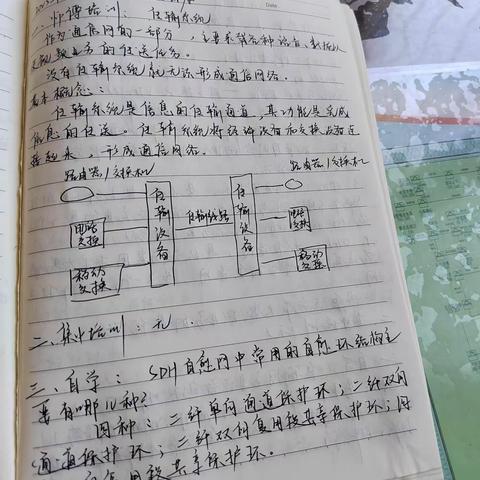 Date
一、师傅培训：传输系统
作为通信网的一部分，主要承载各种语音、数据及
视频业务的传送任务。
没有传输系统就无法形成通信网络。
基本概念：
传输系统是信息的传输通道，其功能是完成
信息的传送。传输系统将终端设备和交换设备连
接起来，形成通信网络。
路由器/交换机 路由器/交换机
传输设备 传输线路 传输设备
电路交换 电路交换
移动交换 移动交换
二、集中培训：无.
三、自学：SDH自愈网中常用的自愈环结构主
要有哪几种？
四种：二纤单向通道保护环；二纤双向
通道保护环；二纤双向复用段共享保护环；四
复用段共享保护环.